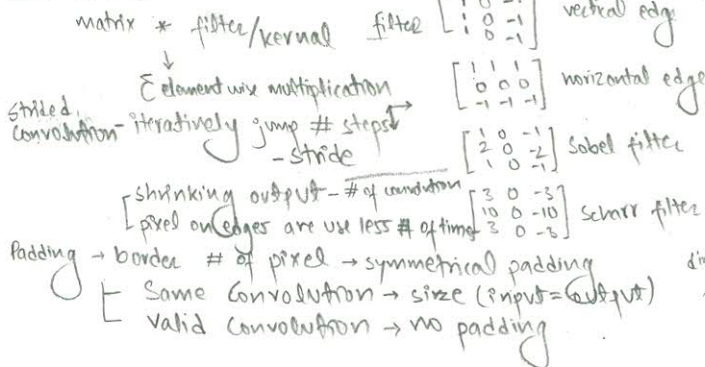 1 0 -1
matrix * filter/kernal filter [1 0 -1] vertical edg
1 0 -1
↓
Σ element wise multiplication [1 1 1
0 0 0
-1 -1 -1] horizontal edge
Strided
Convolution - iteratively jump # steps
- stride
[1 0 -1
2 0 -2
1 0 -1] Sobel filter
[shrinking output - # of convolution
pixel on edges are use less # of time
[3 0 -3
10 0 -10
3 0 -3] Scharr filter
Padding → border # of pixel → symmetrical padding
Same Convolution → size (input = output)
Valid Convolution → no padding